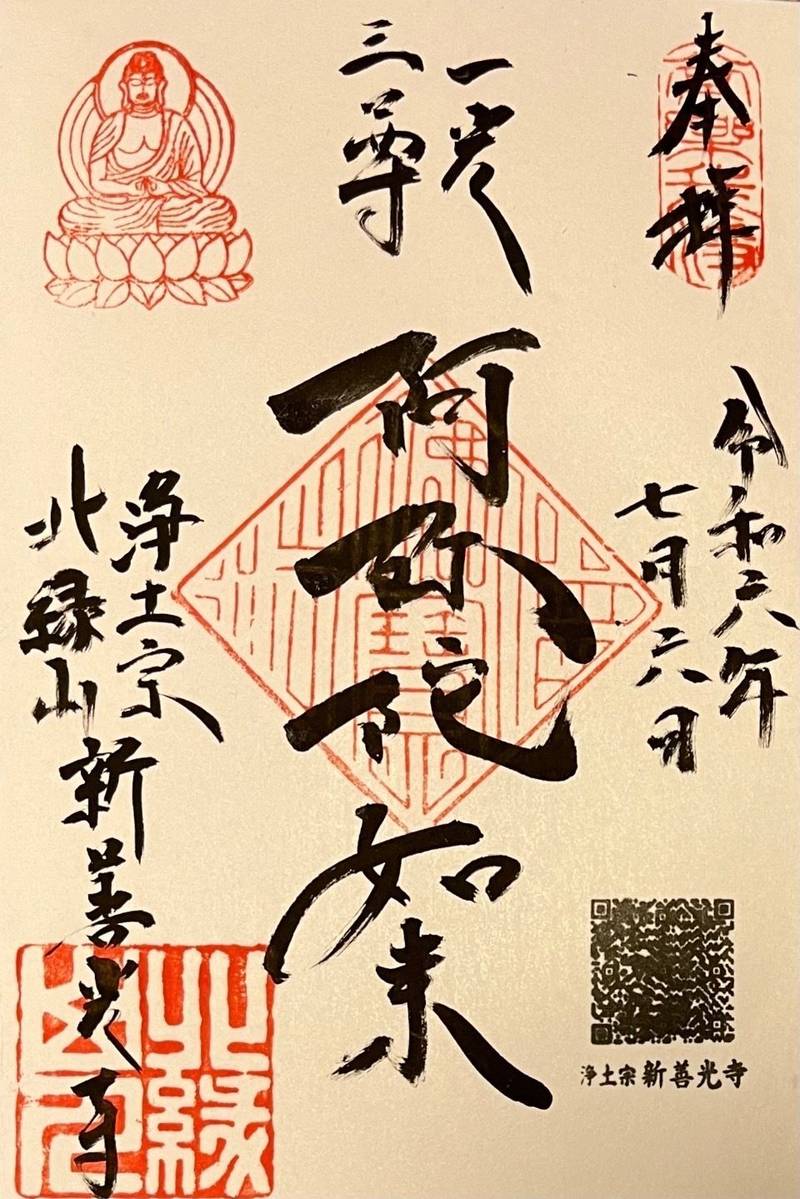 奉拝
令和六年
七月六日
一光
三尊
阿弥陀如来
浄土宗
北縁山新善光寺
浄土宗 新善光寺
北縁